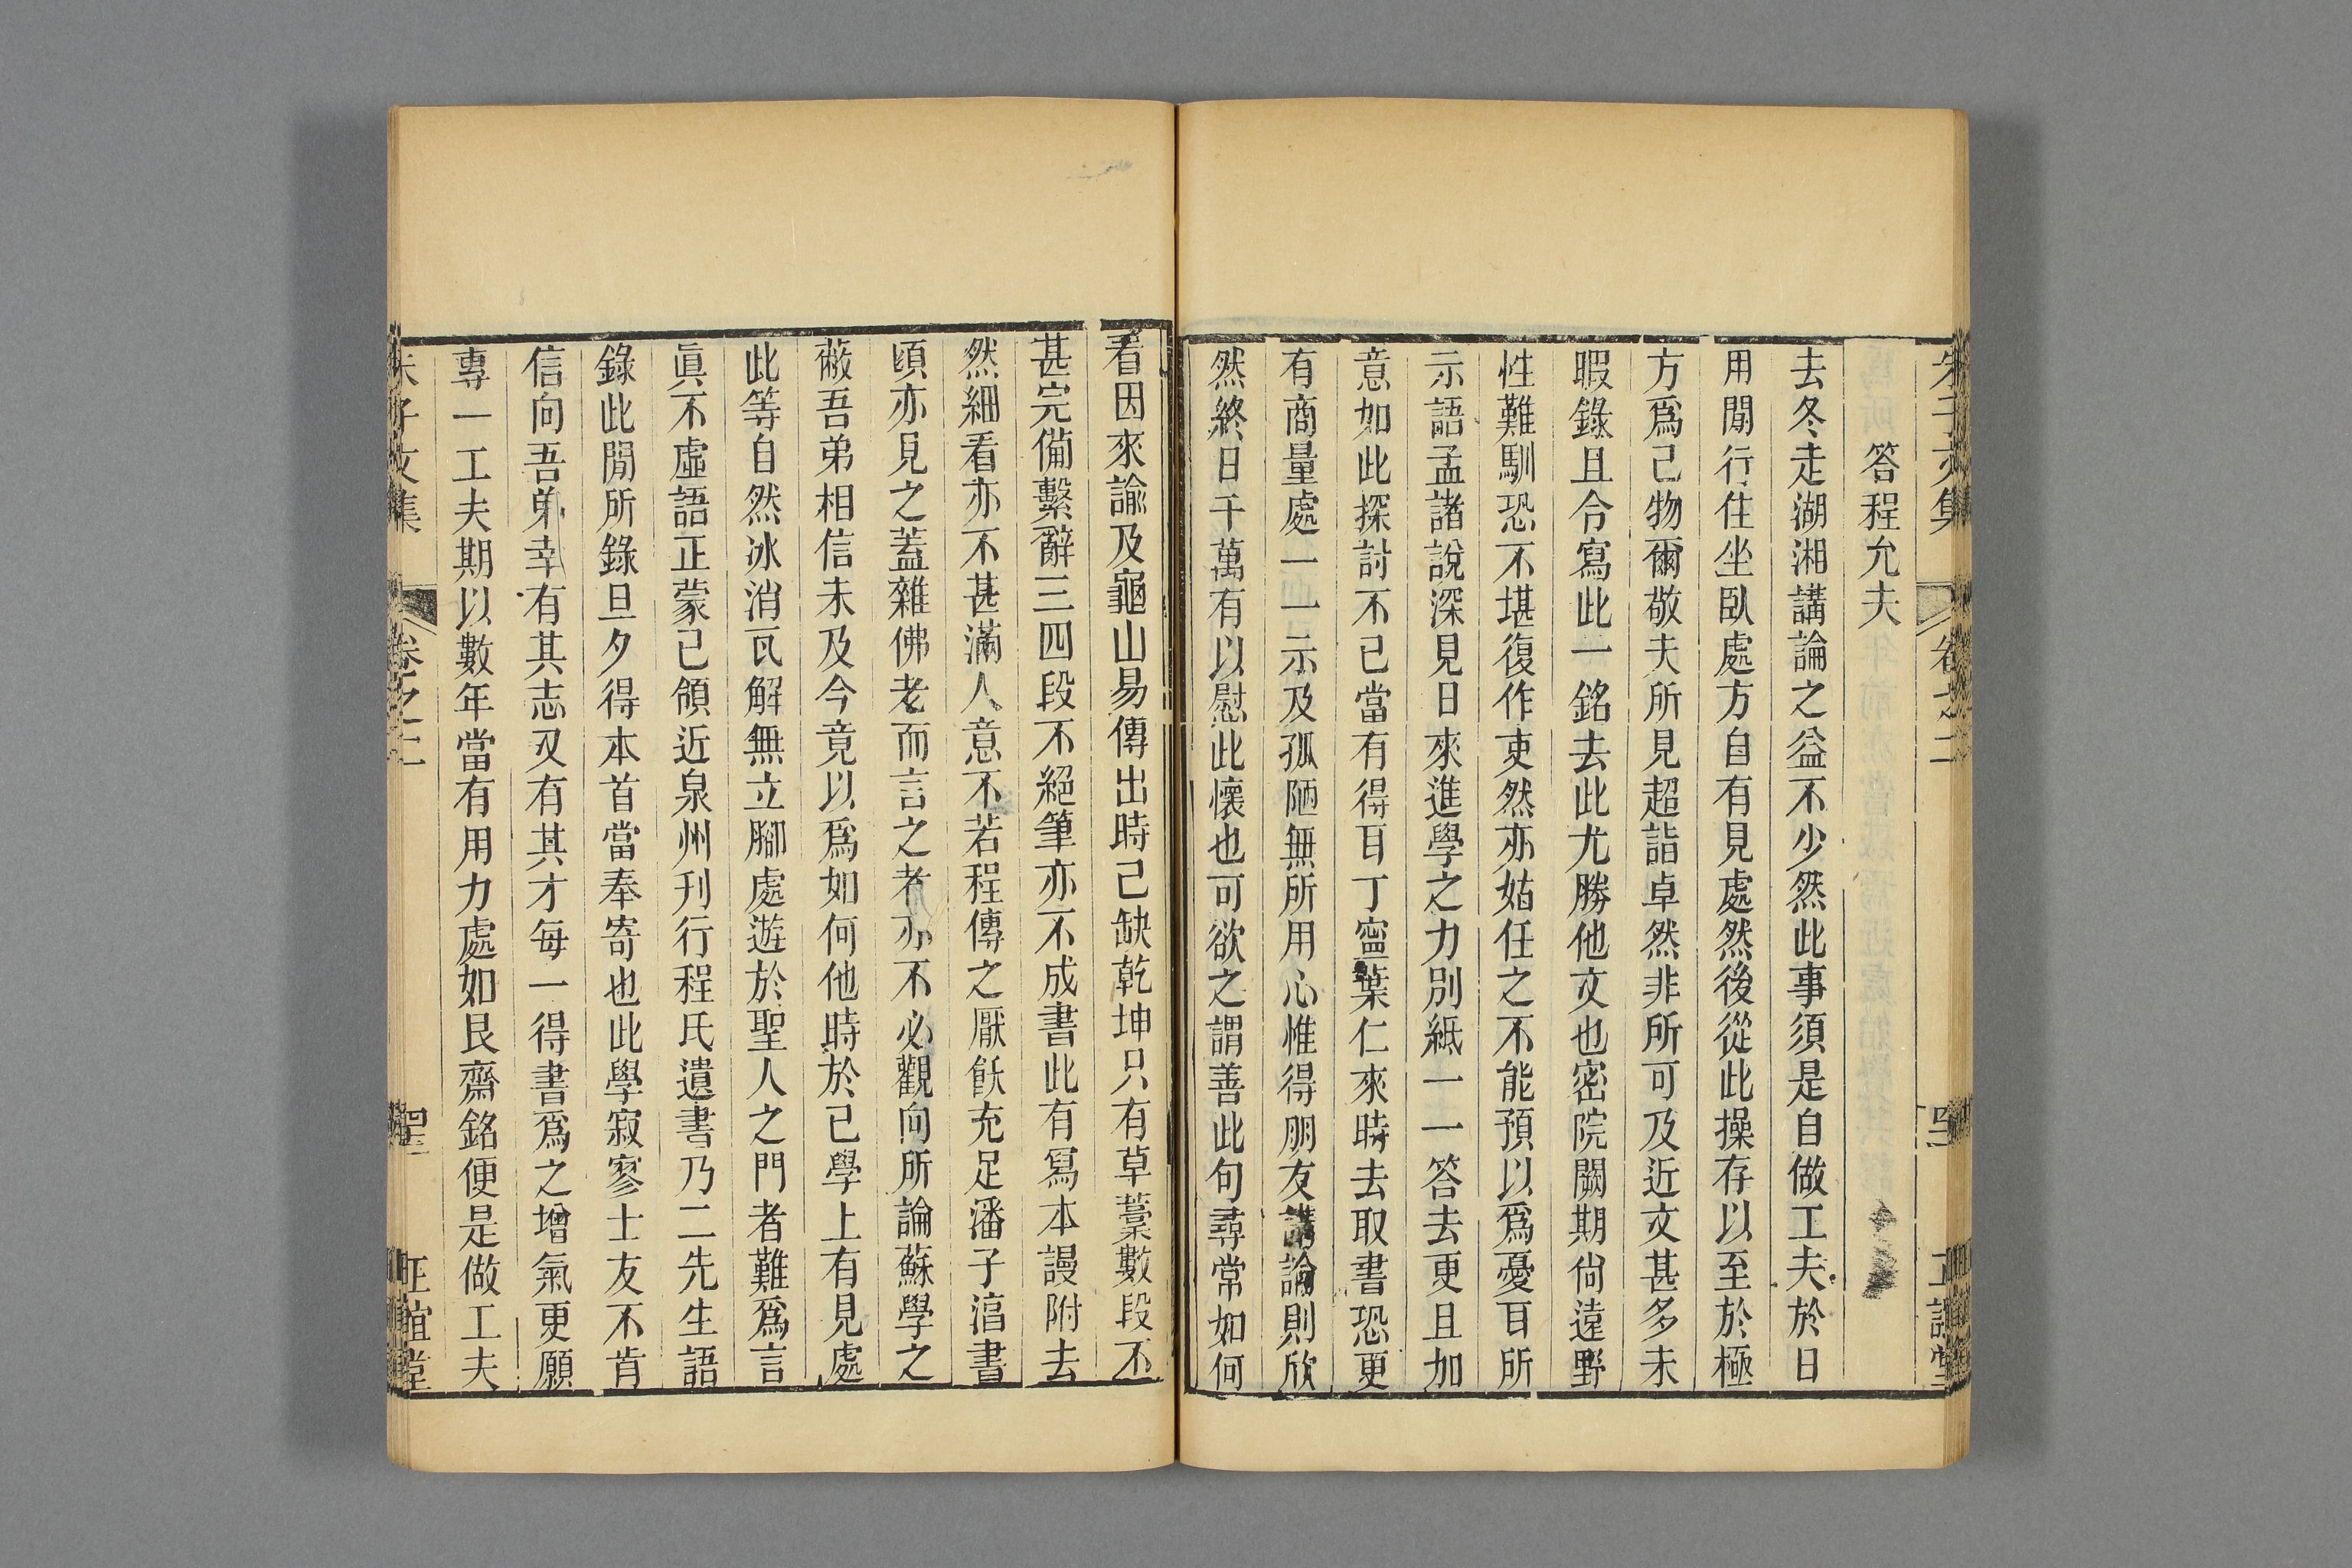 朱子文集 卷之二
答程允夫
去冬走湖湘講論之益不少然此事須是自做工夫於日
用閒行住坐臥處方自有見處然後從此操存以至於極
方爲己物爾敬夫所見超詣卓然非所可及近文甚多未
暇錄且令寫此一銘去此尤勝他文也密院闕期尙遠野
性難馴恐不堪復作吏然亦姑任之不能預以爲憂耳所
示語孟諸說深見日來進學之力別紙一一答去更且加
意如此探討不已當有得耳丁寧葉仁來時去取書恐更
有商量處一一示及孤陋無所用心惟得朋友講論則欣
然終日千萬有以慰此懷也可欲之謂善此句尋常如何
看因來諭及龜山易傳出時已缺乾坤只有草藁數段不
甚完備繫辭三四段不絕筆亦不成書此有寫本謾附去
然細看亦不甚滿人意不若程傳之厭飫充足潘子淯書
頃亦見之蓋雜佛老而言之者亦不必觀向所論蘇學之
蔽吾弟相信未及今竟以爲如何他時於己學上有見處
此等自然冰消瓦解無立腳處遊於聖人之門者難爲言
眞不虛語正蒙已領近泉州刋行程氏遺書乃二先生語
錄此閒所錄旦夕得本首當奉寄也此學寂寥士友不肯
信向吾弟幸有其志又有其才每一得書爲之增氣更願
專一工夫期以數年當有用力處如艮齋銘便是做工夫
朱子文集 卷之二 正誼堂